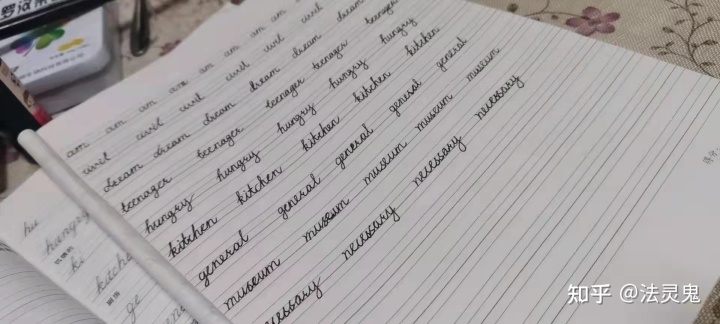 am am am am am am am am
civil civil civil civil civil civil
dream dream dream dream dream dream
teenager teenager teenager teenager teenager
hungry hungry hungry hungry hungry
kitchen kitchen kitchen kitchen kitchen
general general general general general
museum museum museum museum museum
necessary necessary necessary
hu
hungry
ki
kitche
ge
知乎 @法灵鬼